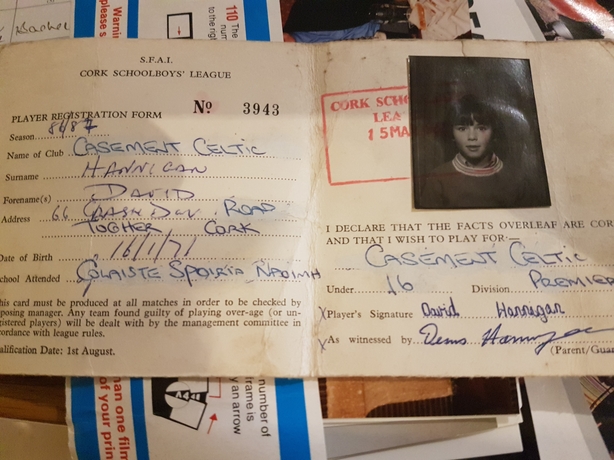 110 The
num
to the
the righ
Warnin
please s
S.F.A.I.
CORK SCHOOLBOYS' LEAGUE
PLAYER REGISTRATION FORM No 3943
Season 86/87
Name of Club CASEMENT CELTIC
Surname HANNIGAN
Forename(s) DAVID
Address 66 ROAD
TOGHER CORK
Date of Birth 16/1/71
School Attended COLAISTE SPOIRID NAOIMH
his card must be produced at all matches in order to be checked by
posing manager. Any team found guilty of playing over-age (or un-
gistered players) will be dealt with by the management committee in
cordance with league rules.
alification Date: 1st August.
CORK SCHO
LEA
15 MA
I DECLARE THAT THE FACTS OVERLEAF ARE COR
AND THAT I WISH TO PLAY FOR—
CASEMENT CELTIC
Under 16 Division PREMIER
Player's Signature David Hannigan
As witnessed by Denis
(Parent/Guar
han one film
of your prin
number of
frame is
y an arrow